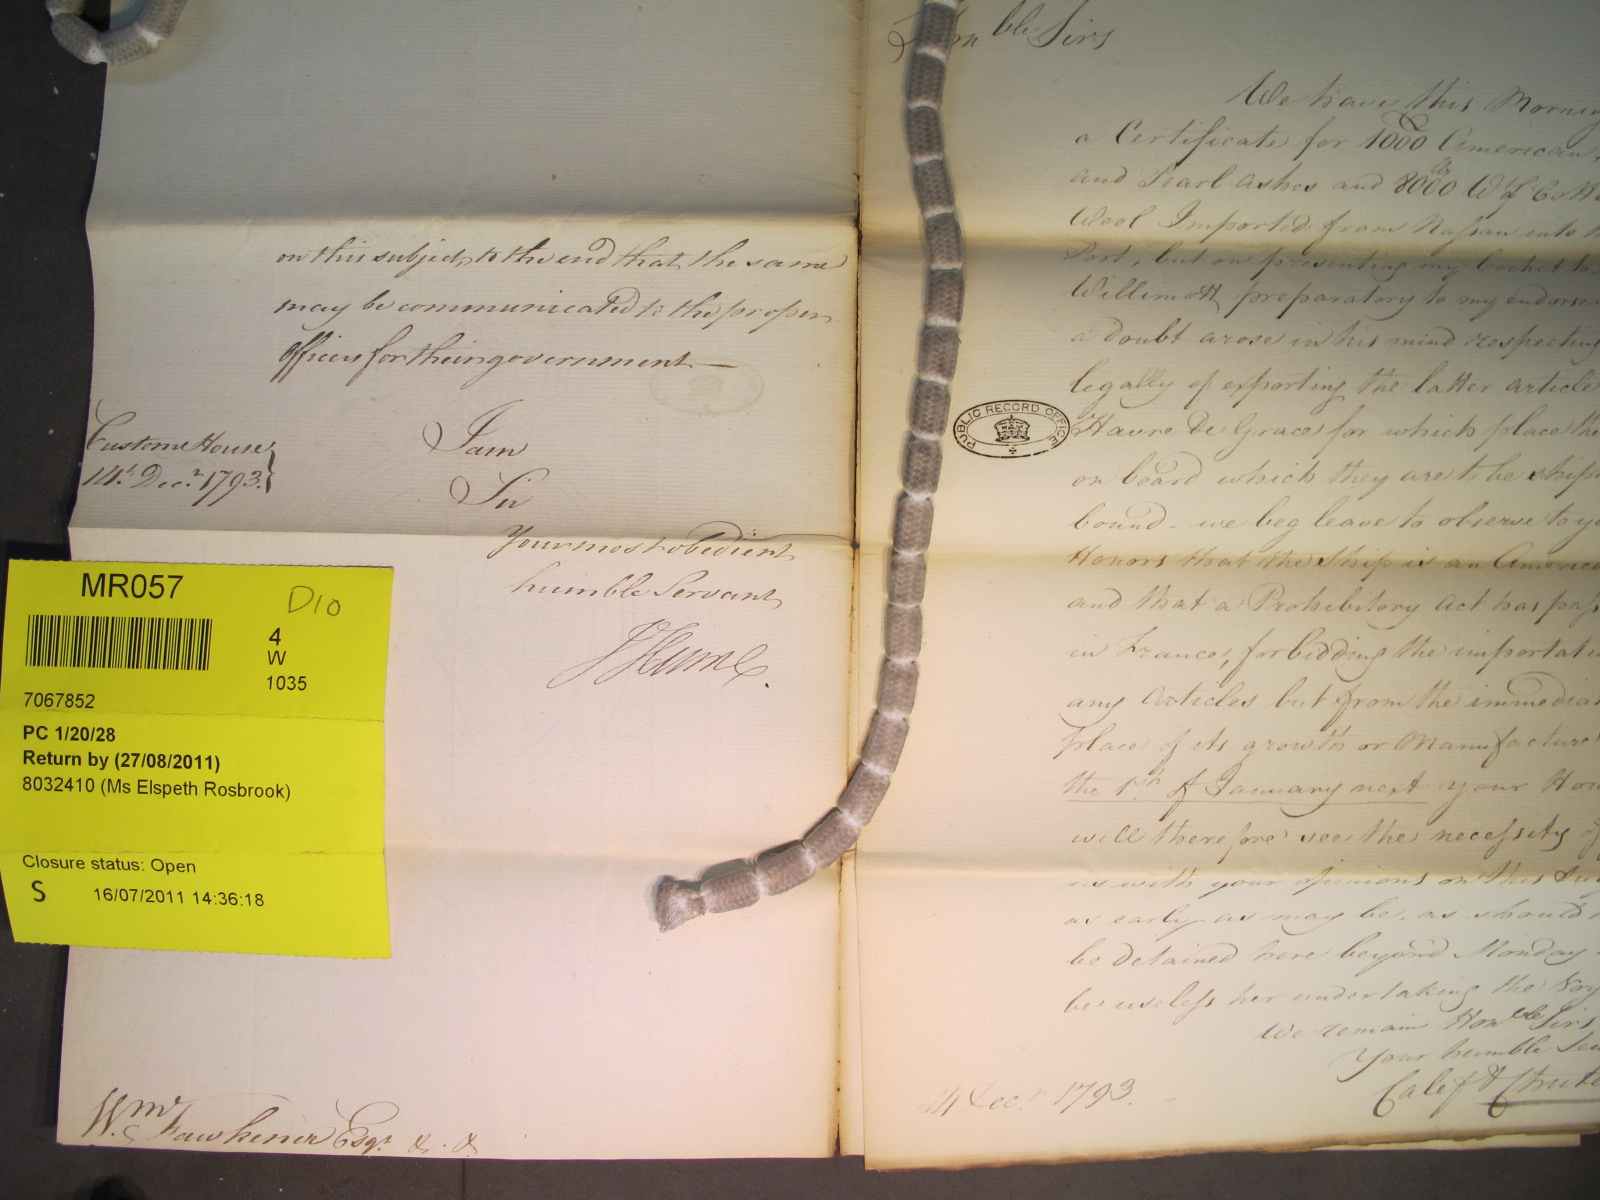 on this subject, to the end that, the same
may be communicated to the proper
officers for their government
Custom House
14th. Decr. 1793.
I am
Sir
Your most obedient
humble Servant
J Hume
Wm. Fawkener Esqr. &c. &c.
MR057
D10
4
W
1035
7067852
PC 1/20/28
Return by (27/08/2011)
8032410 (Ms Elspeth Rosbrook)
Closure status: Open
S 16/07/2011 14:36:18
ble Sirs
We have this Morning
a Certificate for 1000 American
and Pearl Ashes and 8000 Wt. of
Wool Imported from Nassau into
Port, but on presenting my Cocket to
Willimott preparatory to my
a doubt arose in his mind respecting
legally of exporting the latter article
PUBLIC RECORD OFFICE
Havre De Grace for which place the
on board which they are to be
bound - we beg leave to observe to
Honors that the Ship is an
and that a Prohibitory Act has
in France, forbidding the
any Articles but from the
place of its growth or Manufacture
the 1st. of January next your
will therefore see the necessity of
us with your opinions on this
as early as may be, as should
be detained here beyond Monday
be useless her undertaking the
We remain Honble Sirs
Your humble
Calef &
14 Decr. 1793.